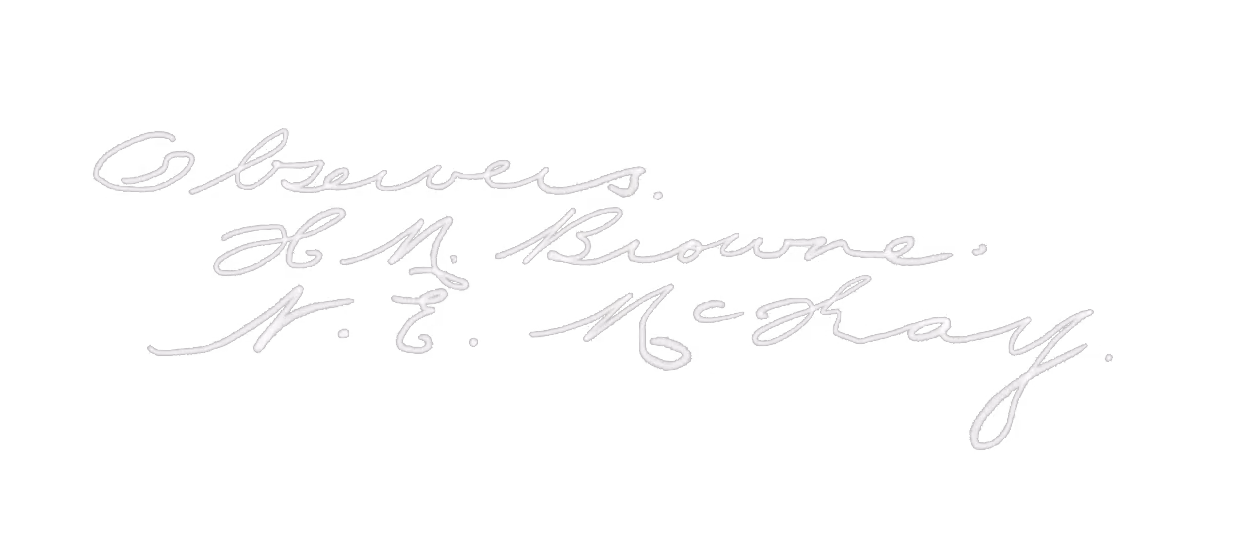 Observers.
H M. Browne.
N. E. McKay.